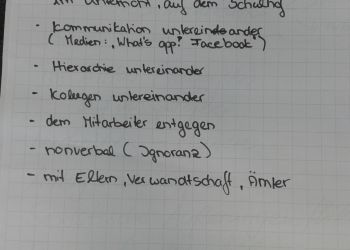 im Unterricht, auf dem Schulhof
- Kommunikation untereinander
( Medien:, What's app? Facebook")
- Hierarchie untereinander
- Kollegen untereinander
- dem Mitarbeiter entgegen
- nonverbal ( Ignoranz)
- mit Eltern, Verwandtschaft, Ämter